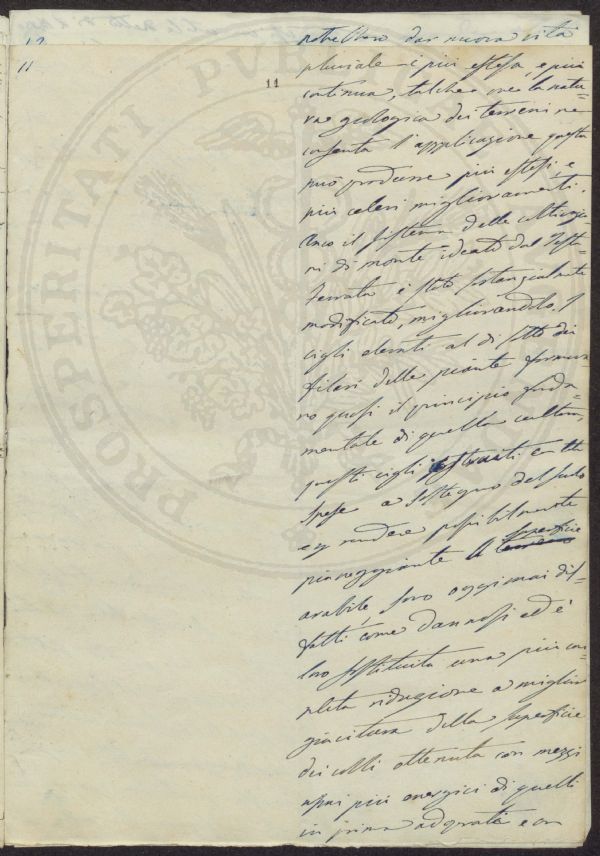 12
potrebbero dar nuova vita
11
11
pluviale e più estesa, e più
continua, talche ove la natu-
ra geologica dei terreni ne
consenta l'applicazione questa
può produrre più estesi, e
più celeri miglioramenti.
Anco il sistema delle coltivazio
ni di monte ideato dal Testa-
ferrata è stato
modificato, migliorandolo. I
cigli elevati al di sotto dei
filari delle piante formava
no quasi il principio fonda-
mentale di quella cultura,
questi cigli costruiti con
spese a sostegno del suolo
e a rendere possibilmente
pianeggiante superficie
arabile, sono oggimai dis-
fatti come dannosi ed è
loro sostituita una più com
pleta riduzione a miglior
giacitura della superficie
dei colli ottenuta con mezzi
assai più energici di quelli
in prima adoprati e con
PROSPERITATI PUBLICAE